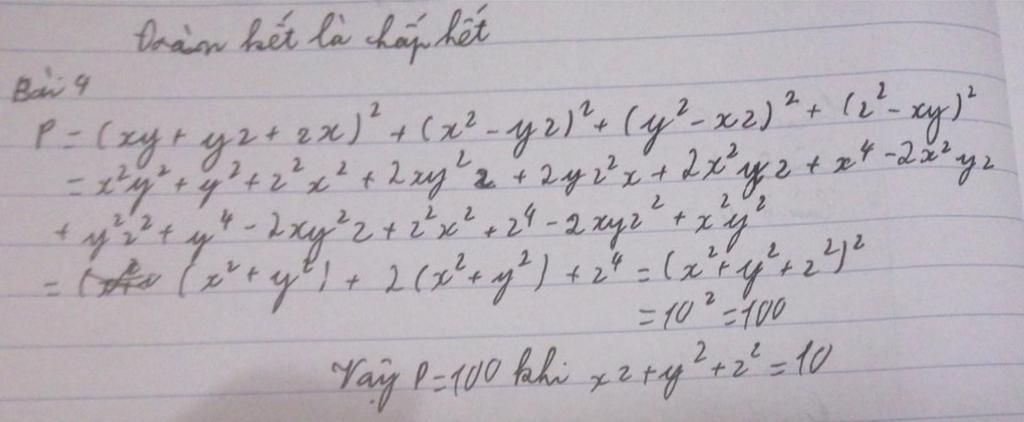 Đoàn kết là chấp hết
Bài 4
P = (xy + yz + zx)² + (x² - yz)² + (y² - xz)² + (z² - xy)²
= x²y² + y² + z²x² + 2xy²z + 2yz²x + 2x²yz + x⁴ - 2x²yz
+ y²z² + y⁴ - 2xy²z + z²x² + z⁴ - 2xyz² + x²y²
= (x² + y²) + 2(x² + y²) + z⁴ = (x² + y² + z²)²
= 10² = 100
Vậy P = 100 khi xz + y² + z² = 10